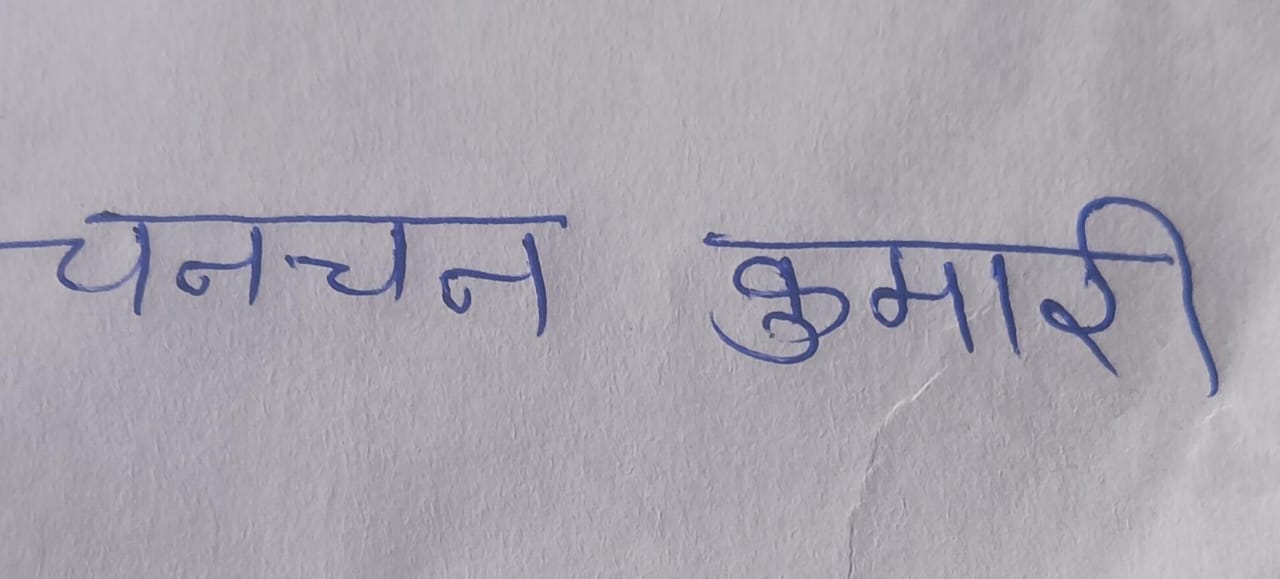 चनचन कुमारी